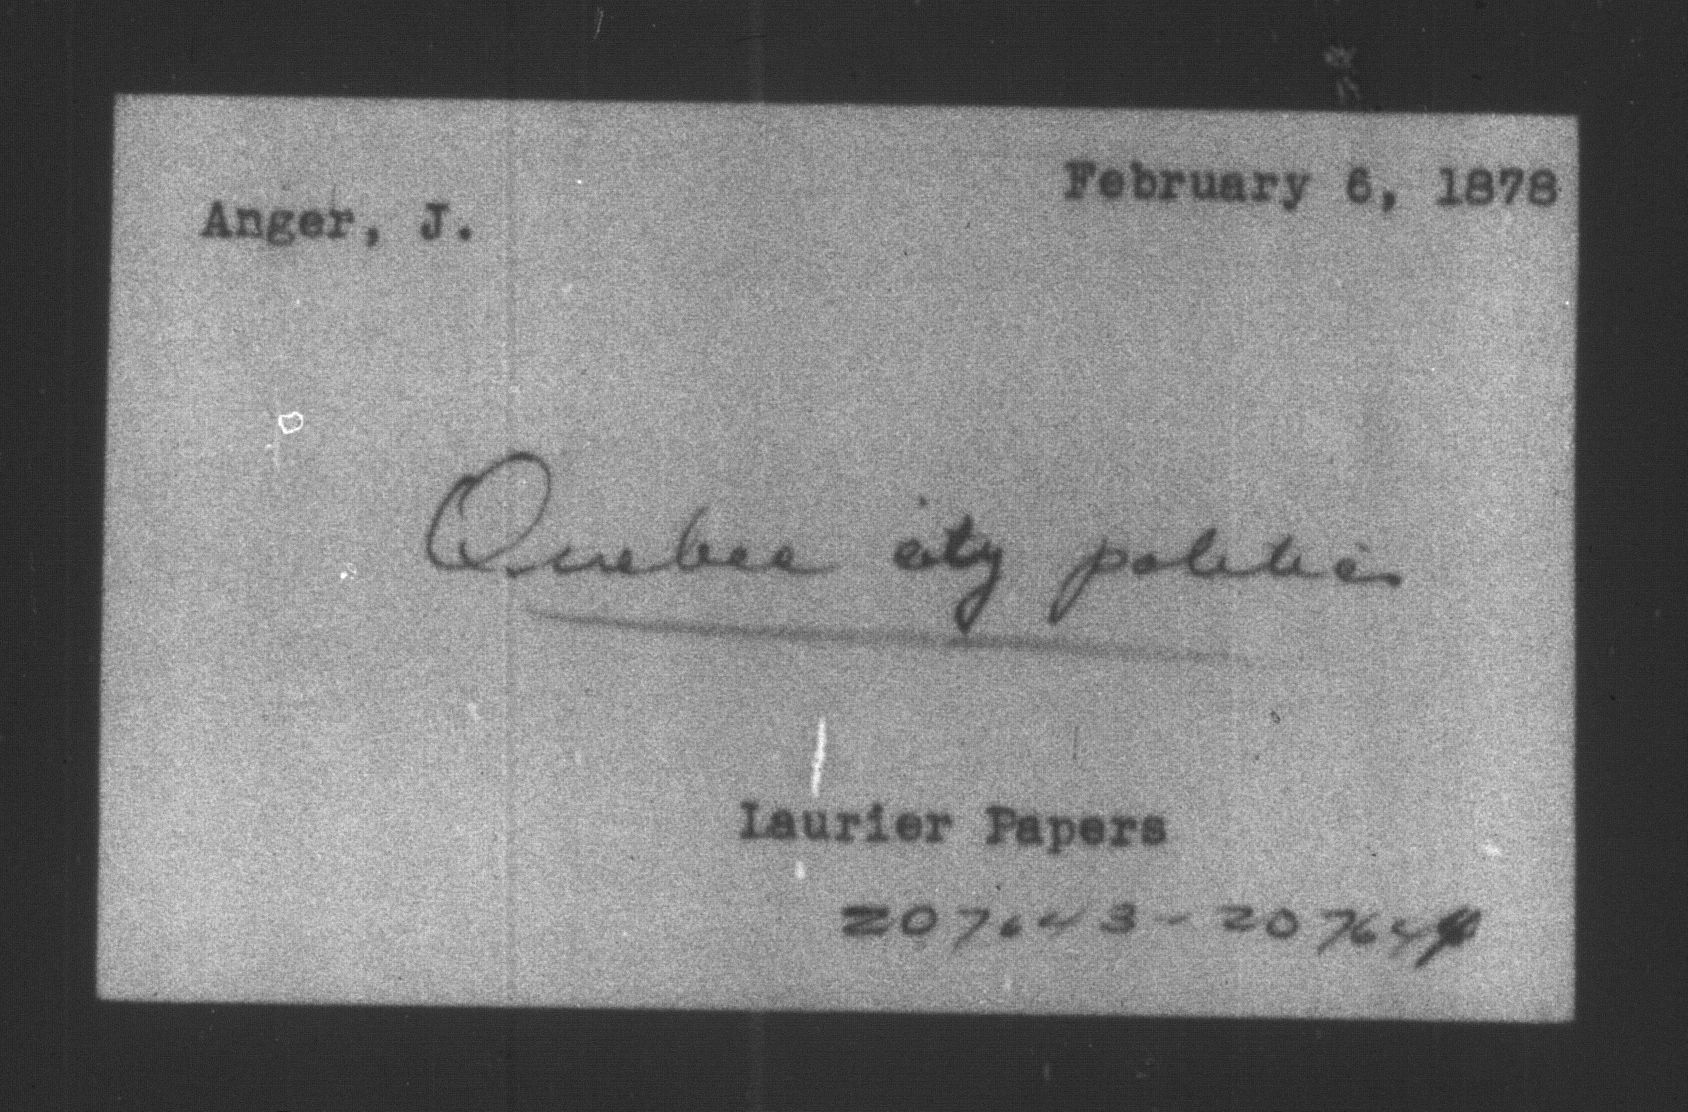 February 6, 1878
Anger, J.
Quebec city politics
Laurier Papers
207643-207644